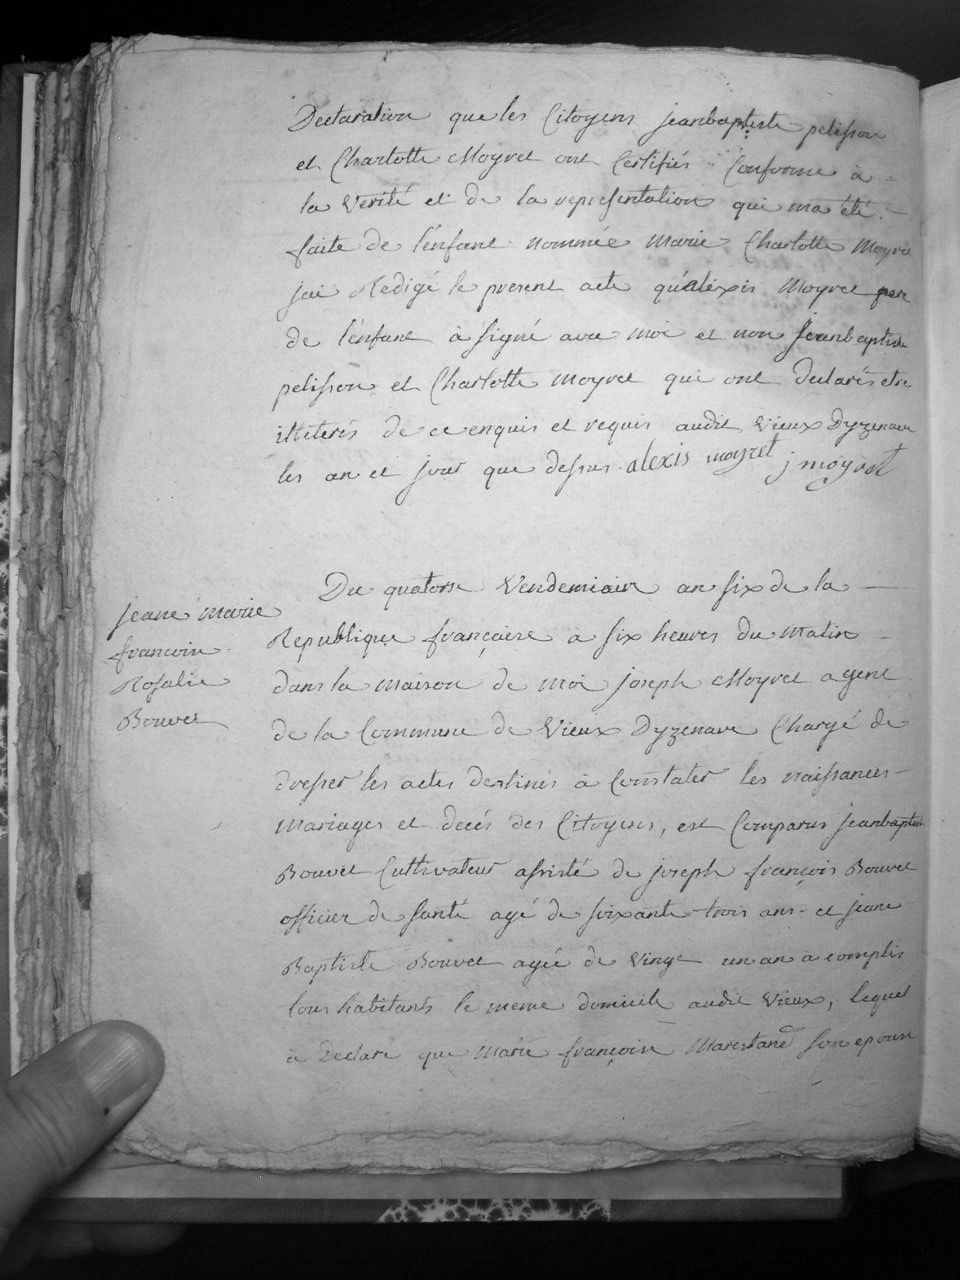 Declaration que les Citoyens jeanbaptiste pelisson
et Charlotte Moyret ont Certifiés Conforme à
la Verité et de la representation qui ma été
faite de l'enfant nommée Marie Charlotte Moyret
jai Redigé le present acte qu'aléxis Moyret pere
de l'enfant à signé avec moi et non jeanbaptiste
pelisson et Charlotte moyret qui ont declarés etre
illiterés de ce enquis et requis audit Vieux Dyzenave
les an et jour que dessus. alexis moyret j moyret
Du quatorse Vendemiaire an six de la
Republique françaire à six heures du Matin
dans la maison de moi joseph Moyret agent
de la Commune de Vieux Dyzenave Chargé de
dresser les actes destinés à Constater les naissances
Mariages et decés des Citoyens, est Comparus jeanbaptiste
Bouvet Cultivateur assisté de joseph françois Bouvet
officier de santé agé de soixante trois ans et jeane
Baptiste Bouvet agée de Vingt un an acomplis
tous habitants le meme domicile audit Vieux, lequel
à Declaré que Marie françoise Marestand son epouse
jeane Marie
françoise
Rosalie
Bouvet